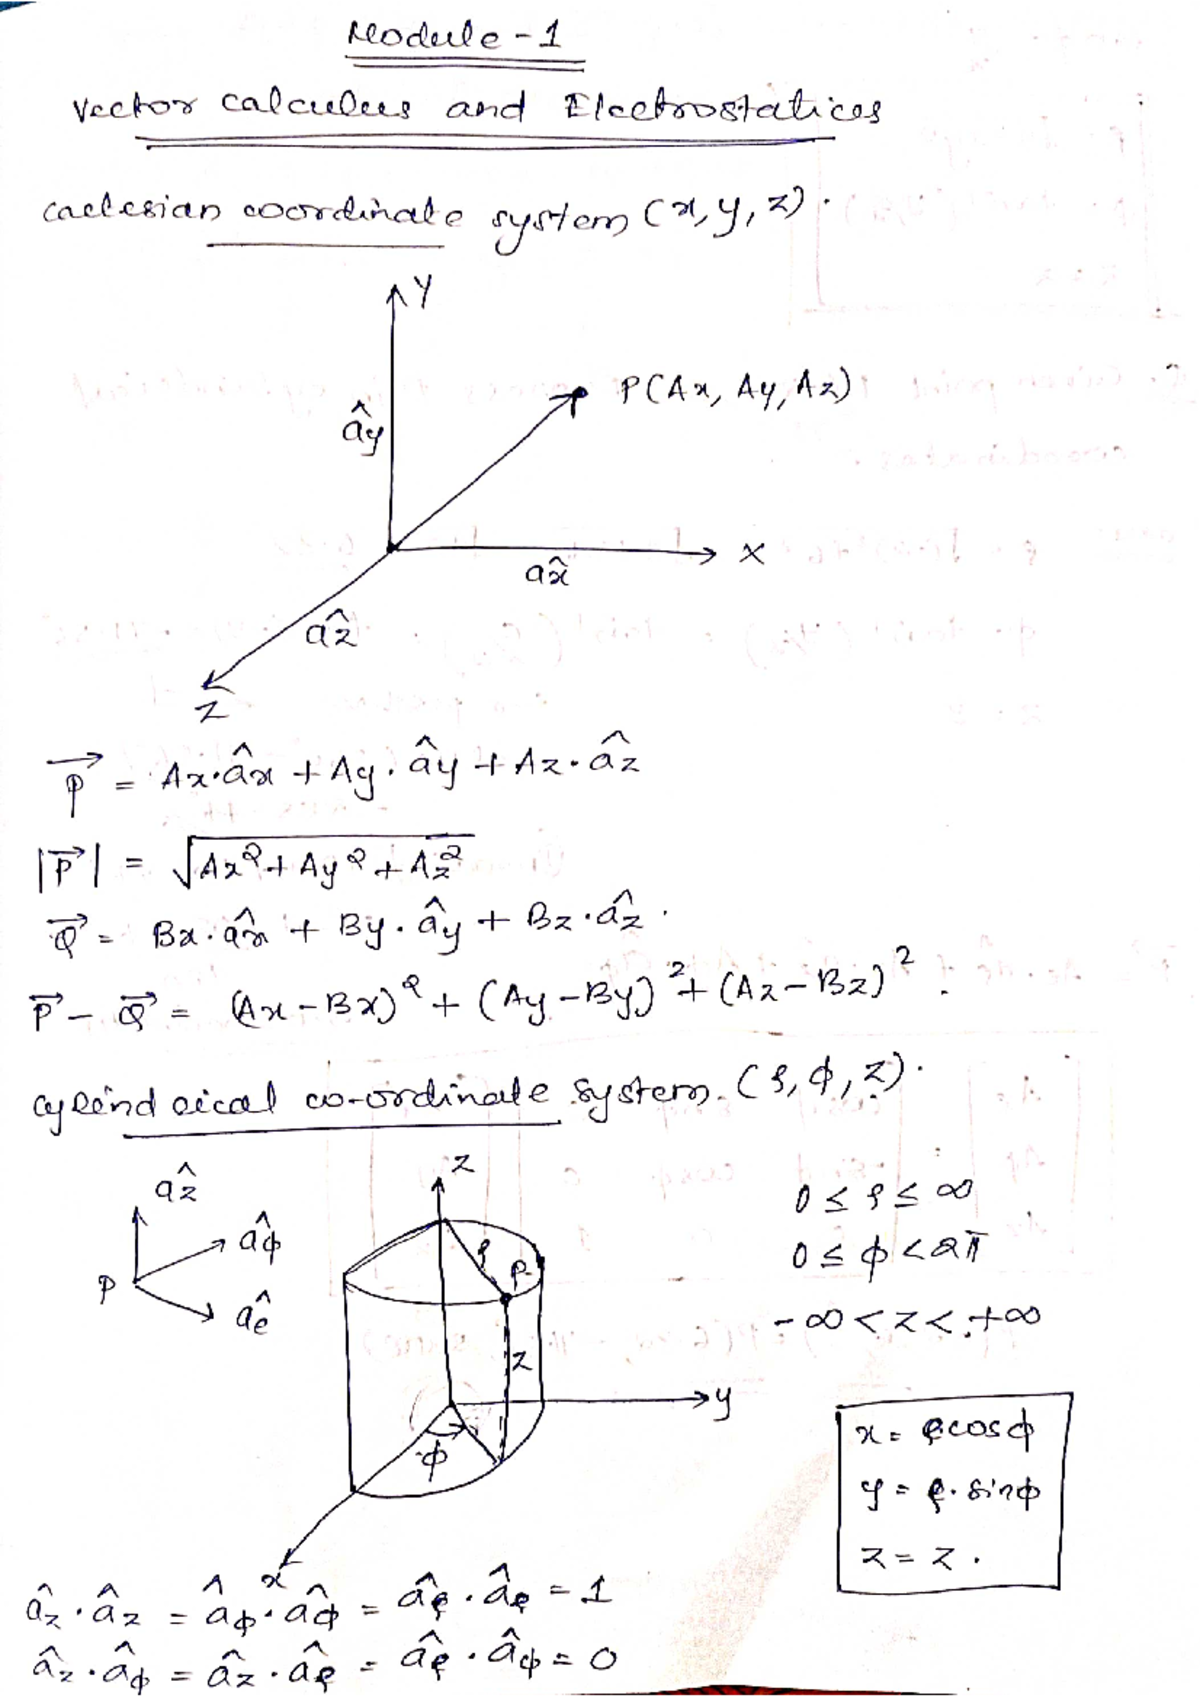 Module-1
Vector calculus and Electrostatices
cartesian coordinate system (x, y, z).
Y
P(Ax, Ay, Az)
ây
X
ax̂
aẑ
Z
P⃗ = Ax·âx + Ay·ây + Az·âz
|P⃗| = √Ax² + Ay² + Az²
Q⃗ = Bx·âx + By·ây + Bz·âz.
P⃗ - Q⃗ = (Ax-Bx)² + (Ay-By)² + (Az-Bz)².
cylindrical co-ordinate system. (ρ, φ, z).
z
aẑ
0 ≤ ρ ≤ ∞
aφ̂
ρ
P
0 ≤ φ < 2π
P
aρ̂
-∞ < z < +∞
z
y
x = ρcosφ
φ
y = ρ·sinφ
z = z.
x
âz·âz = âφ·âφ = âρ·âρ = 1
âz·âφ = âz·âρ = âρ·âφ = 0